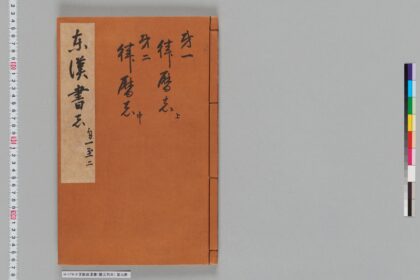 東漢書志 自一至二
第一
律暦志 上
第二
律暦志 中